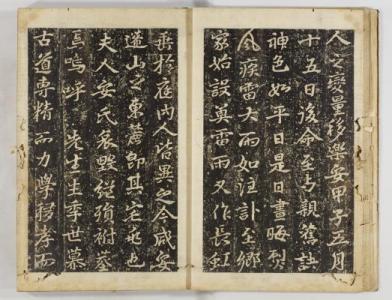 人之變量移樂安甲子五月
十五日後命至与親舊訣
神色如平日是日晝晦烈
風疾雷大雨如注訃至鄉
家始設奠雷雨又作長虹
垂於庭內人皆異之今咸安
蓬山之東麓即其宅兆也
夫人安氏哀毀繼殞祔葬
焉嗚呼 先生生季世慕
古道專精而力學移孝而